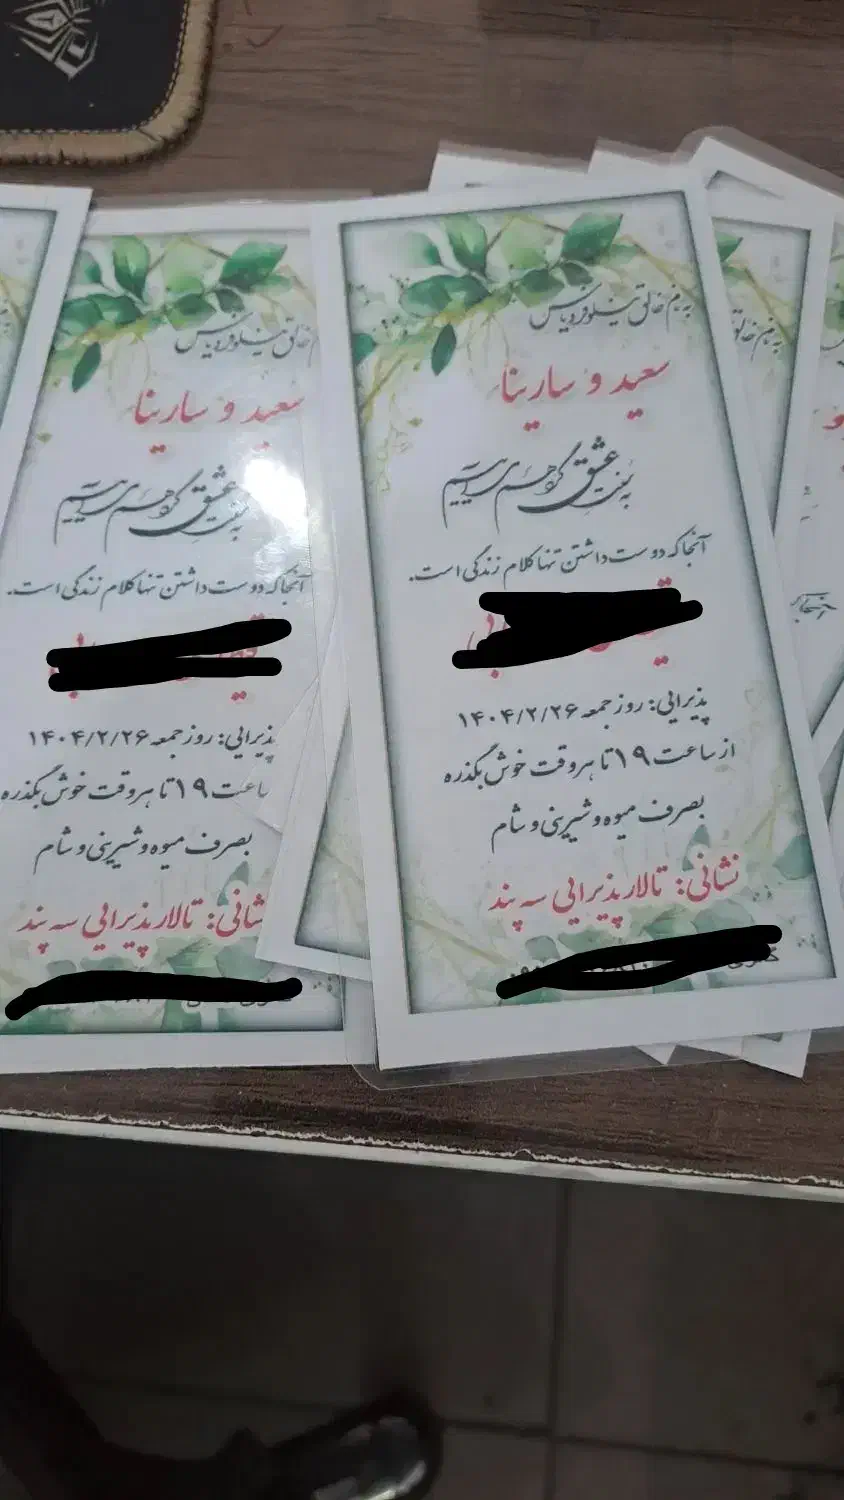 به یمن خالق نیلوفر و یاس
سعید و سارینا
به سُنت عشق گرد هم می‌آییم
آنجا که دوست داشتن تنها کلام زندگی است.
پذیرایی: روز جمعه ۱۴۰۴/۲/۲۶
از ساعت ۱۹ تا هر وقت خوش بگذره
بصرف میوه و شیرینی و شام
نشانی: تالار پذیرایی سه پند
خالق نیلوفر و یاس
سعید و سارینا
به سُنت عشق گرد هم می‌آییم
آنجا که دوست داشتن تنها کلام زندگی است.
پذیرایی: روز جمعه ۱۴۰۴/۲/۲۶
ساعت ۱۹ تا هر وقت خوش بگذره
بصرف میوه و شیرینی و شام
نشانی: تالار پذیرایی سه پند
به یمن خالق